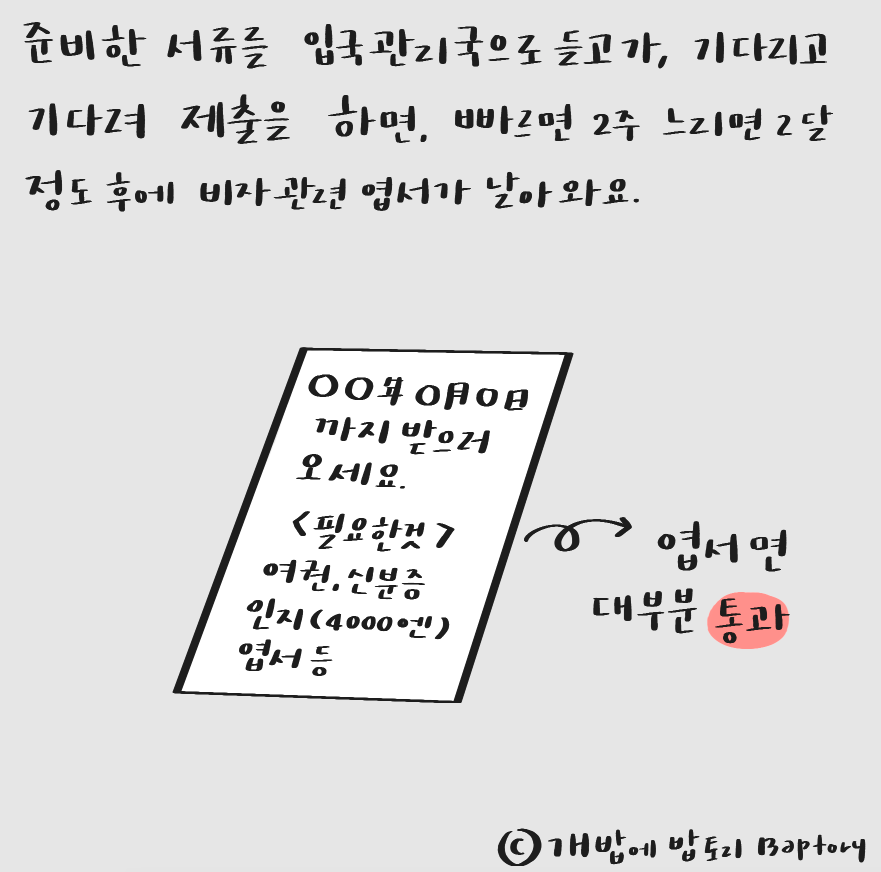 준비한 서류를 입국관리국으로 들고가, 기다리고
기다려 제출을 하면, 빠르면 2주 느리면 2달
정도 후에 비자관련 엽서가 날아와요.
00年 0月 0日
까지 받으러
오세요.
<필요한것>
여권, 신분증
인지(4000엔)
엽서 등
엽서면
대부분 통과
©개밥에 밥토리 Baptory